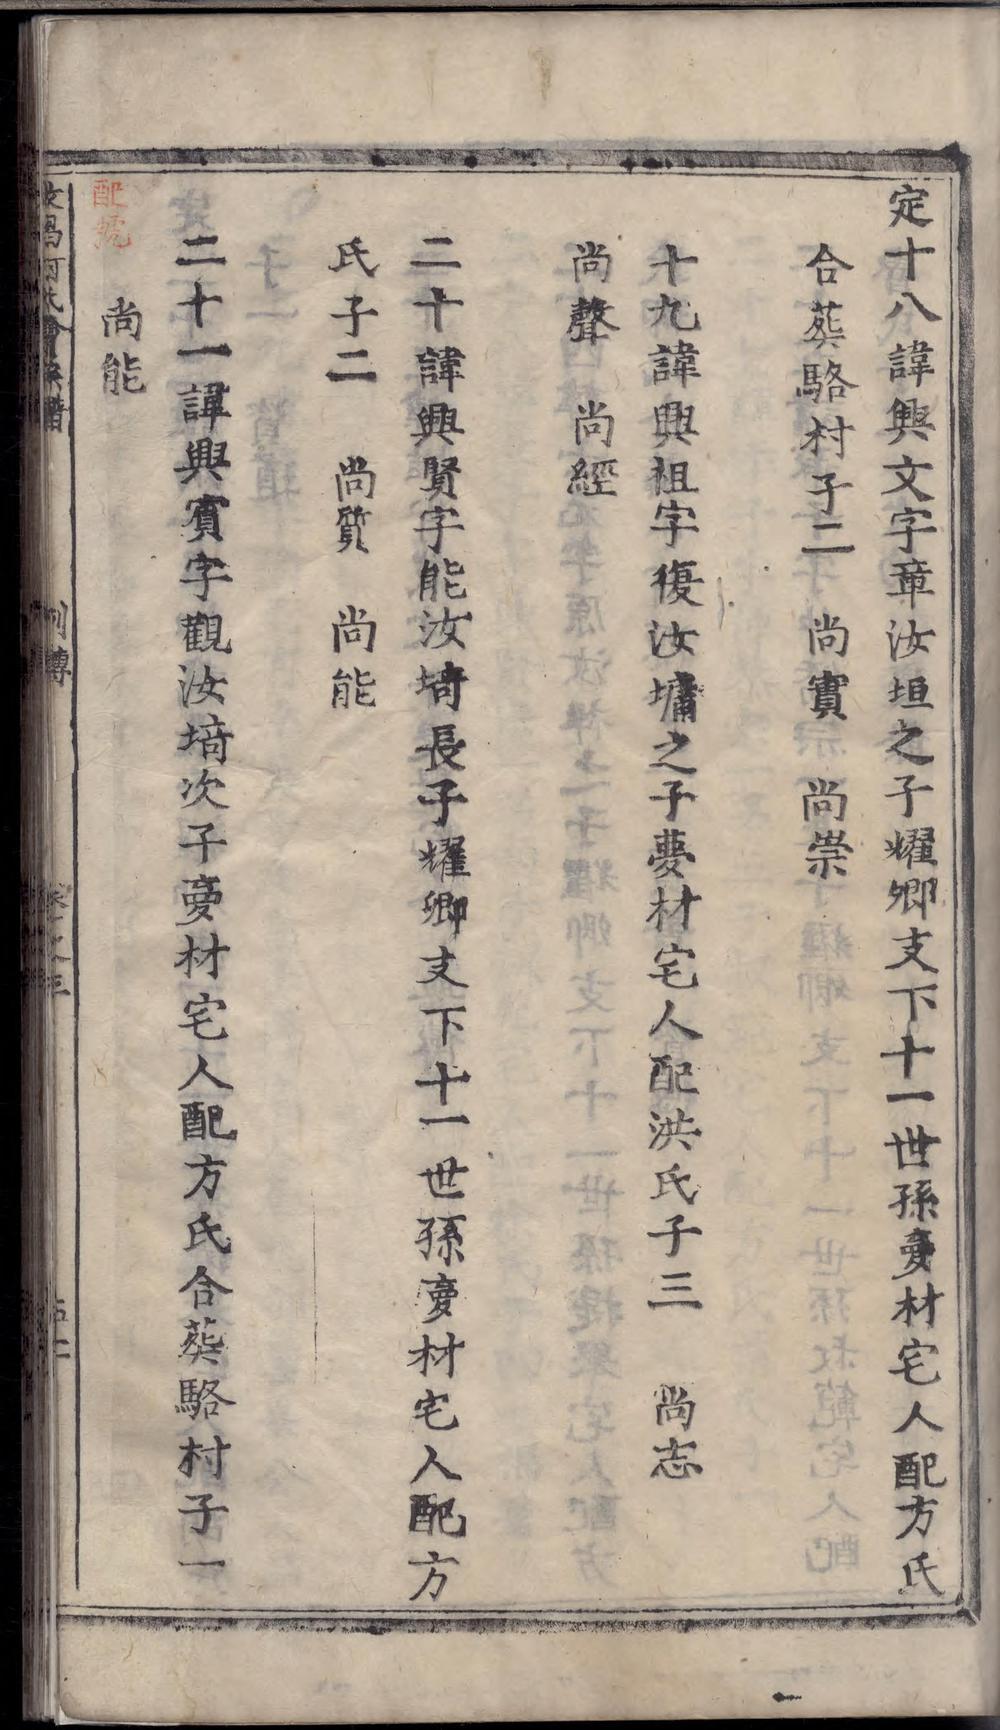 定十八諱興文字章汝垣之子耀卿支下十一世孫夢材宅人配方氏
合葬駱村子二　尚實　尚崇
十九諱興祖字復汝墉之子夢材宅人配洪氏子三　尚志
尚聲　尚經
二十諱興賢字能汝埼長子耀卿支下十一世孫夢材宅人配方
氏子二　尚質　尚能
二十一諱興賓字觀汝埼次子夢材宅人配方氏合葬駱村子一
尚能
配號
列傳